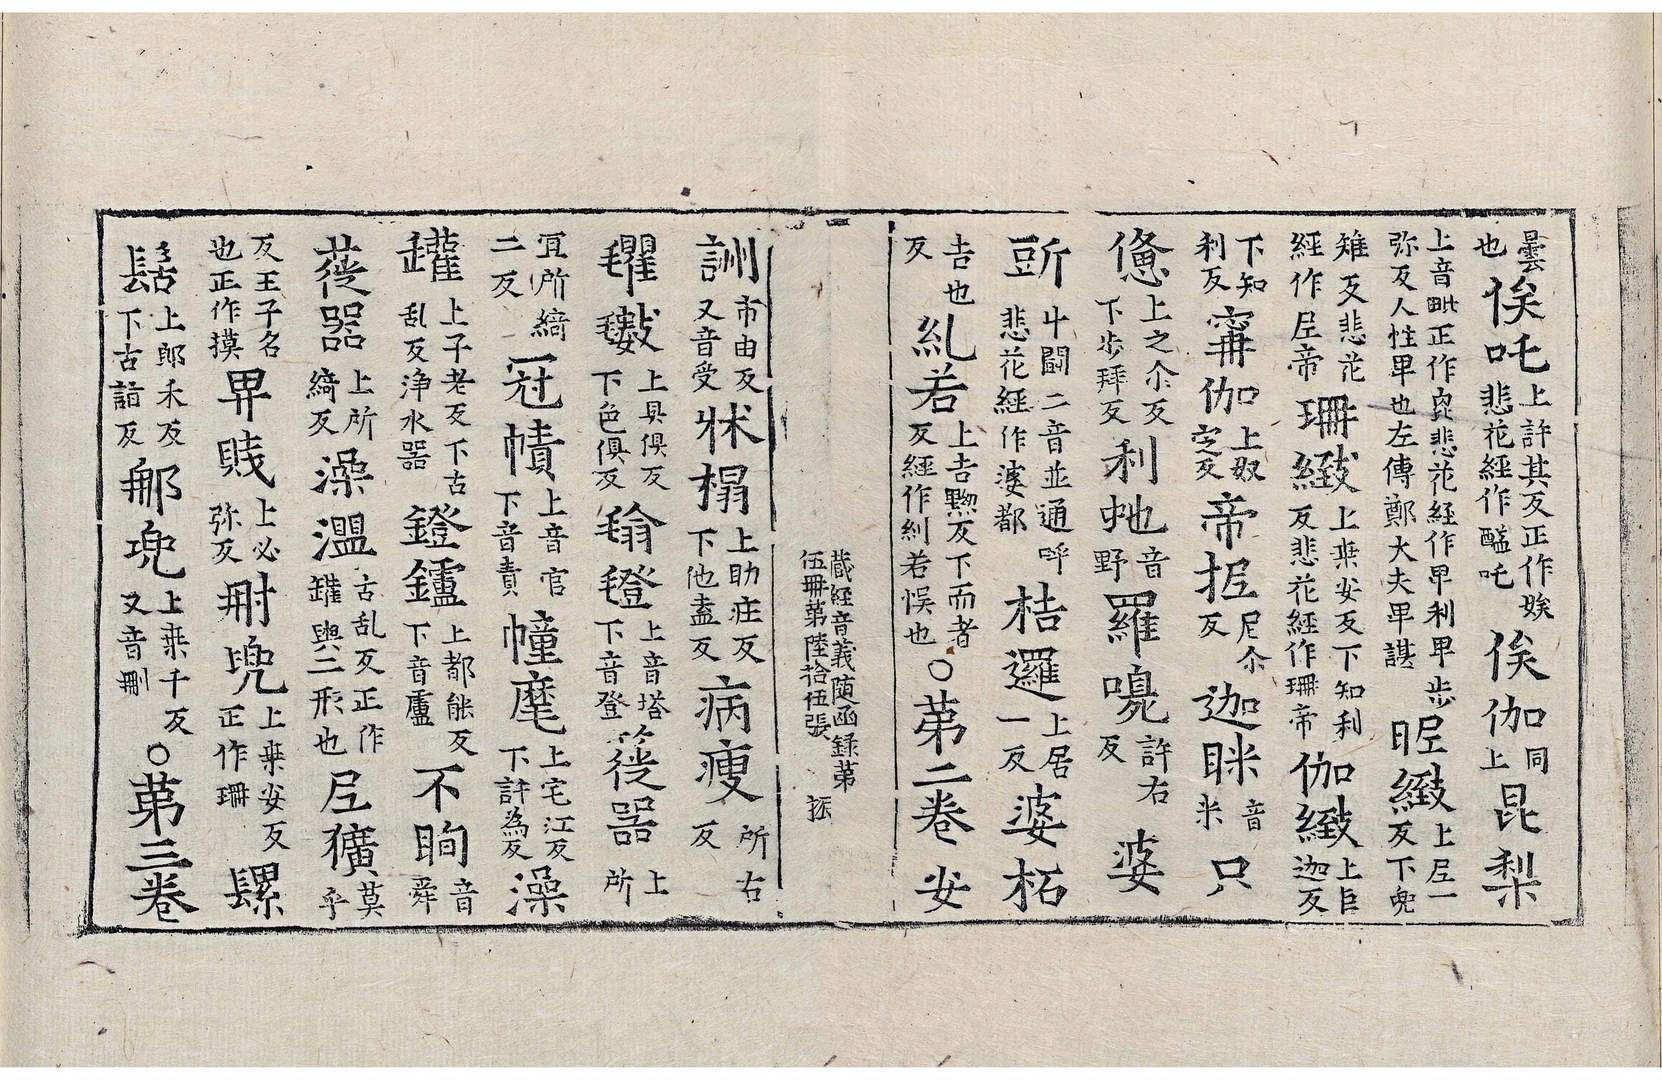 曇也俟吒上許其反正作娭悲花經作醯吒俟伽同上昆梨
上音毗正作毘悲花經作卑利卑步弥反人性卑也左傳鄭大夫卑諶昵緻上尼一反下兜
雉反悲花經作尼帝珊緻上桒安反下知利反悲花經作珊帝伽緻上巨迦反
下知利反甯伽上奴定反帝抳尼尒反迦眯音米只
憊上之尒反下步拜反利虵音野羅嘵許右反婆
斲斗闘二音並通呼悲花經作婆都桔邏上居一反婆柘
𠮷也反糺若上𠮷黝反下而者反經作糾若悮也〇第二卷安
藏經音義随函録第伍冊第陸拾伍張振
詶市由反又音受牀榻上助庄反下他盍反病瘦所右反
氍𣯜上具俱反下色俱反㲮㲪上音塔下音登簁器上所
冝反所綺二反冠幘上音官下音責幢麾上宅江反下許為反澡
鑵上子老反下古乱反浄水器鐙鑪上都能反下音廬不眴音舜
蓰器上所綺反澡灅古乱反正作鑵與二形也尼獷莫乎
反王子名也正作摸畀賎上必弥反𠜂兜上桒安反正作珊䯁
𩭪上郎禾反下古詣反郍兜上桒千反又音刪〇第三卷